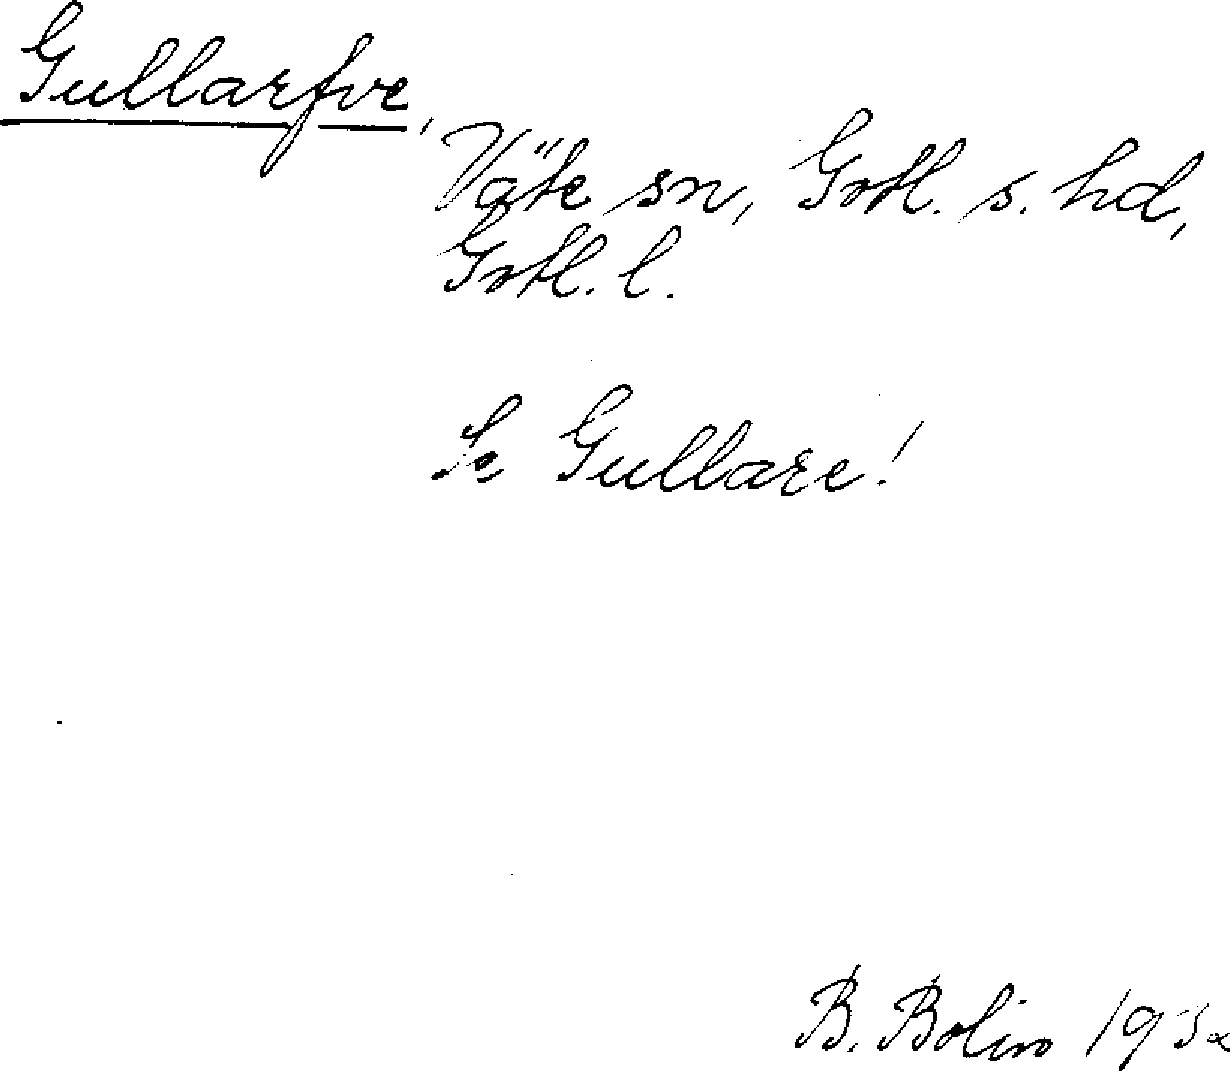 Gullarfve,
Väte sn, Gotl. s. hd,
Gotl. l.
Se Gullare!
B. Bolin 1932